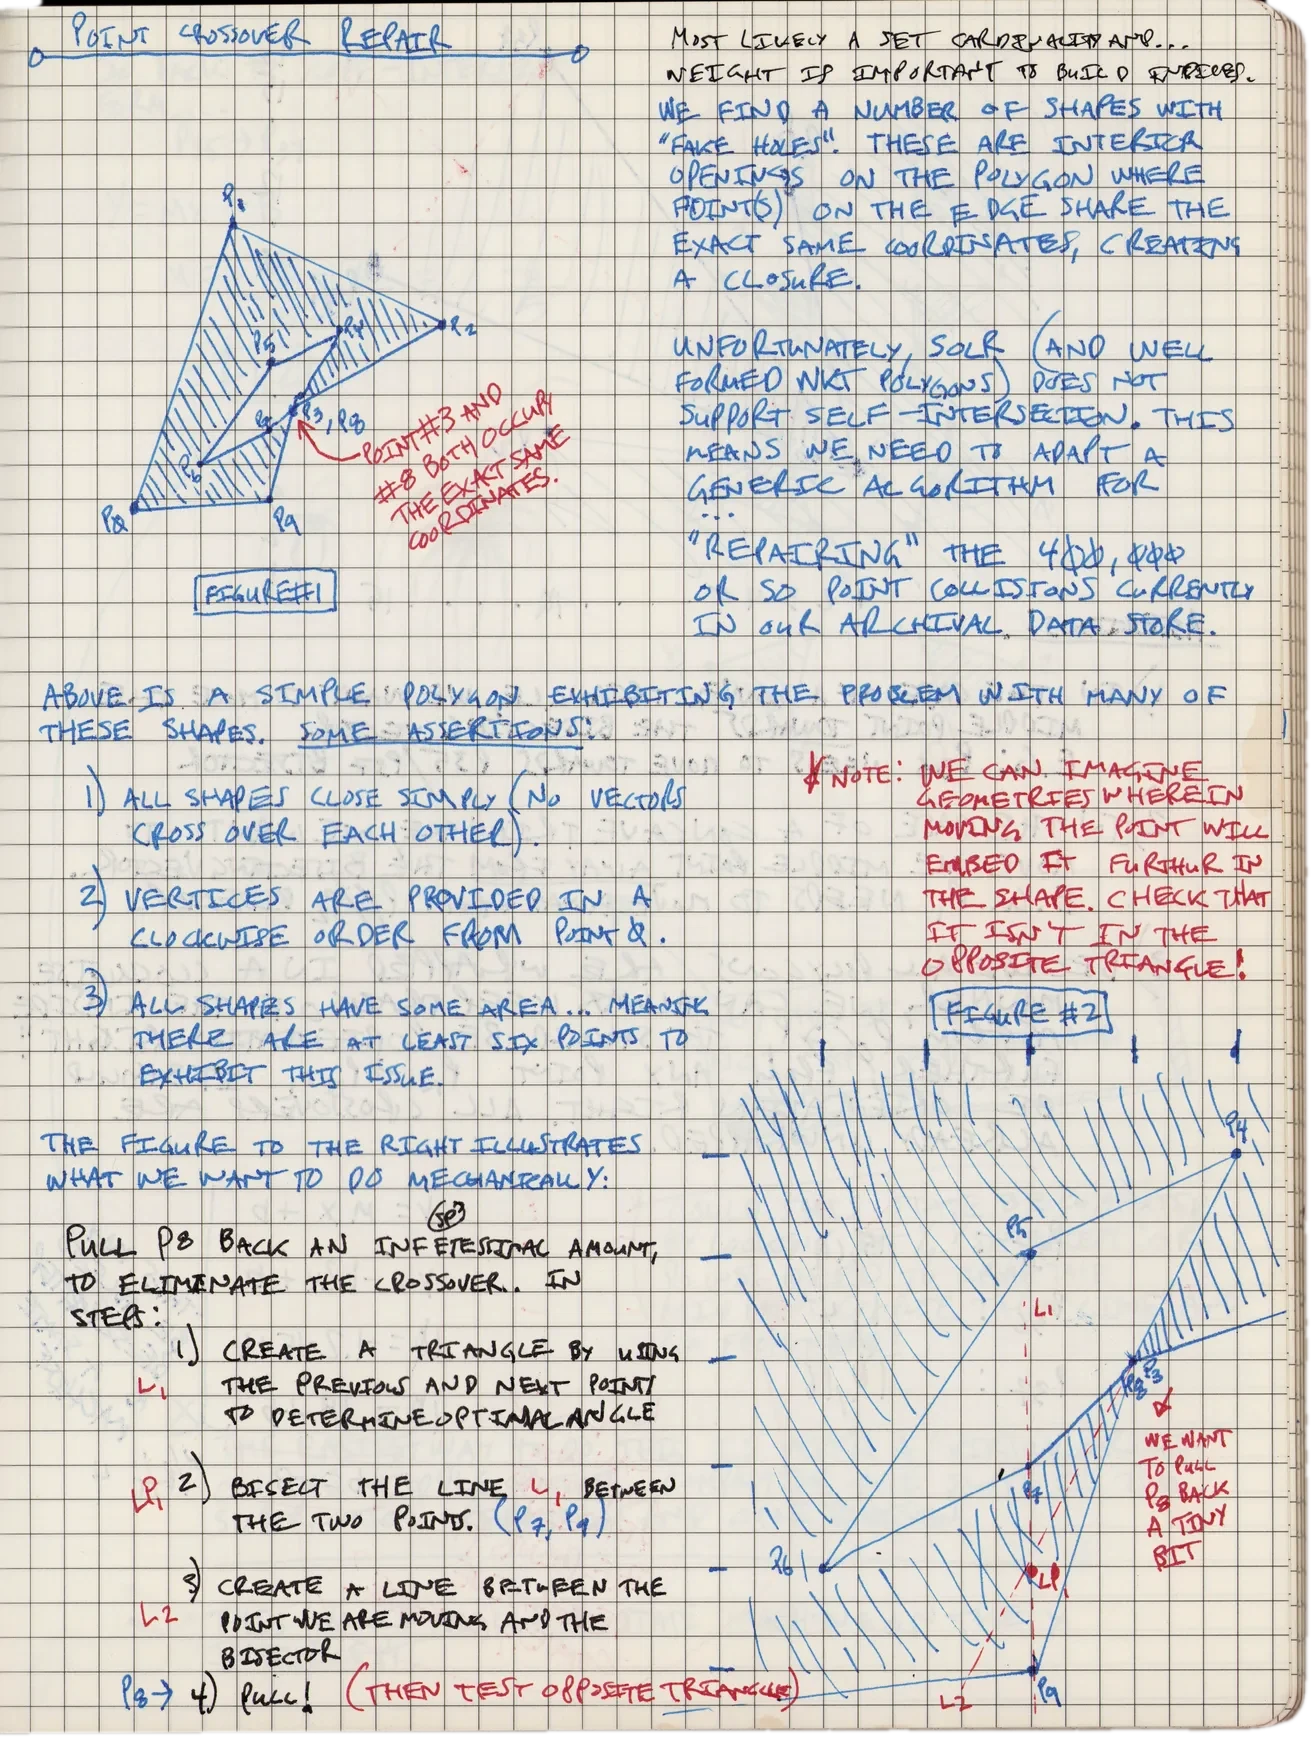 POINT CROSSOVER REPAIR
MOST LIKELY A SET CARDINALITY AND...
WEIGHT IS IMPORTANT TO BUILD INDICES.
WE FIND A NUMBER OF SHAPES WITH
"FAKE HOLES". THESE ARE INTERIOR
OPENINGS ON THE POLYGON WHERE
POINT(S) ON THE EDGE SHARE THE
EXACT SAME COORDINATES, CREATING
A CLOSURE.
UNFORTUNATELY, SOLR (AND WELL
FORMED WKT POLYGONS) DOES NOT
SUPPORT SELF-INTERSECTION. THIS
MEANS WE NEED TO ADAPT A
GENERIC ALGORITHM FOR
...
"REPAIRING" THE 400,000
OR SO POINT COLLISIONS CURRENTLY
IN OUR ARCHIVAL DATA STORE.
P1
P2
P4
P5
P3, P8
P7
P6
P0
P9
POINT #3 AND
#8 BOTH OCCUPY
THE EXACT SAME
COORDINATES.
FIGURE #1
ABOVE IS A SIMPLE POLYGON EXHIBITING THE PROBLEM WITH MANY OF
THESE SHAPES. SOME ASSERTIONS:
1) ALL SHAPES CLOSE SIMPLY (NO VECTORS
CROSS OVER EACH OTHER).
2) VERTICES ARE PROVIDED IN A
CLOCKWISE ORDER FROM POINT 0.
3) ALL SHAPES HAVE SOME AREA... MEANING
THERE ARE AT LEAST SIX POINTS TO
EXHIBIT THIS ISSUE.
* NOTE: WE CAN IMAGINE
GEOMETRIES WHEREIN
MOVING THE POINT WILL
EMBED IT FURTHUR IN
THE SHAPE. CHECK THAT
IT ISN'T IN THE
OPPOSITE TRIANGLE!
FIGURE #2
THE FIGURE TO THE RIGHT ILLUSTRATES
WHAT WE WANT TO DO MECHANICALLY:
SP?
PULL P8 BACK AN INFETESSIMAL AMOUNT,
TO ELIMINATE THE CROSSOVER. IN
STEPS:
1) CREATE A TRIANGLE BY USING
L1 THE PREVIOUS AND NEXT POINTS
TO DETERMINE OPTIMAL ANGLE
LP1 2) BISECT THE LINE L1 BETWEEN
THE TWO POINTS. (P7, P9)
3) CREATE A LINE BETWEEN THE
L2 POINT WE ARE MOVING AND THE
BISECTOR
P8→ 4) PULL! (THEN TEST OPPOSITE TRIANGLE)
P4
P5
L1
P8 P3
WE WANT
TO PULL
P8 BACK
A TINY
BIT
P7
P6
LP1
L2
P9